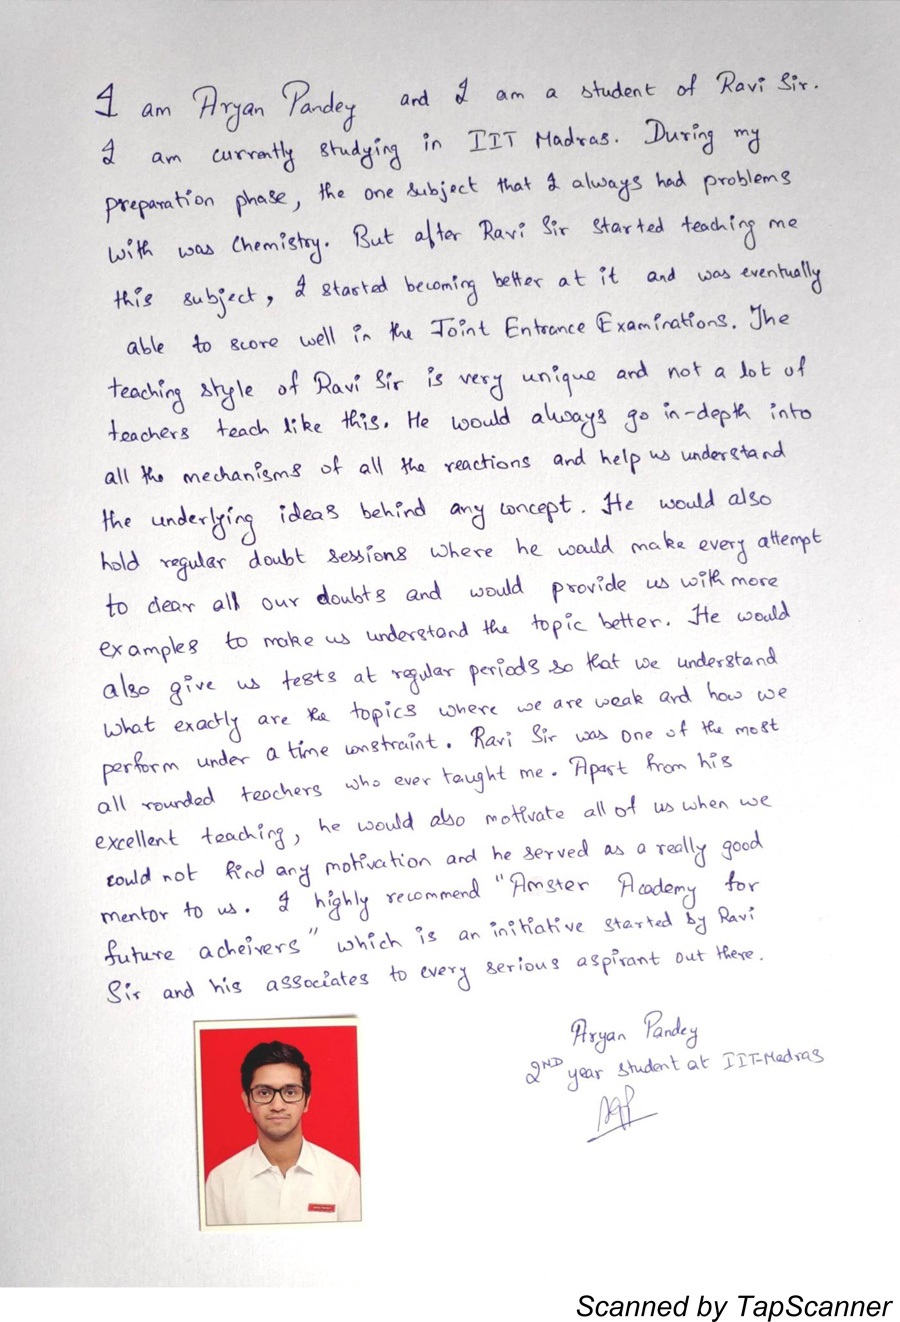 I am Aryan Pandey and I am a student of Ravi Sir.
I am currently studying in IIT Madras. During my
preparation phase, the one subject that I always had problems
with was Chemistry. But after Ravi Sir started teaching me
this subject, I started becoming better at it and was eventually
able to score well in the Joint Entrance Examinations. The
teaching style of Ravi Sir is very unique and not a lot of
teachers teach like this. He would always go in-depth into
all the mechanisms of all the reactions and help us understand
the underlying ideas behind any concept. He would also
hold regular doubt sessions where he would make every attempt
to clear all our doubts and would provide us with more
examples to make us understand the topic better. He would
also give us tests at regular periods so that we understand
what exactly are the topics where we are weak and how we
perform under a time constraint. Ravi Sir was one of the most
all rounded teachers who ever taught me. Apart from his
excellent teaching, he would also motivate all of us when we
could not find any motivation and he served as a really good
mentor to us. I highly recommend "Amster Academy for
future acheivers" which is an initiative started by Ravi
Sir and his associates to every serious aspirant out there.
Aryan Pandey
2ND year student at IIT-Madras
Scanned by TapScanner